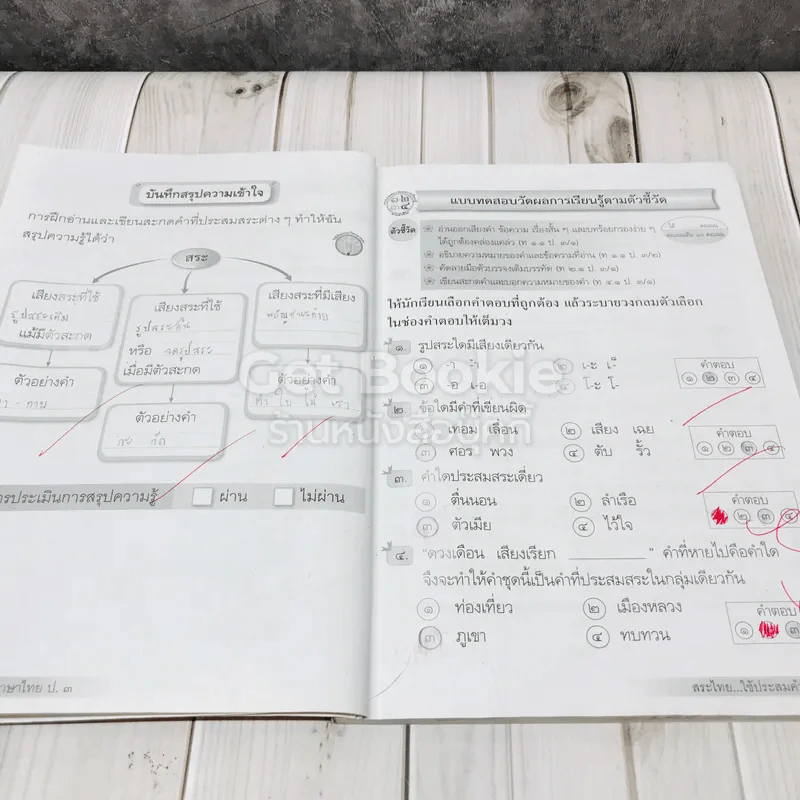 บันทึกสรุปความเข้าใจ
การฝึกอ่านและเขียนสะกดคำที่ประสมสระต่าง ๆ ทำให้ฉัน
สรุปความรู้ได้ว่า
สระ
เสียงสระที่ใช้
รูปสระเดิม
แม้มีตัวสะกด
เสียงสระที่ใช้
หรือ ลดรูปสระ
เมื่อมีตัวสะกด
เสียงสระที่มีเสียง
ตัวอย่างคำ
ตัวอย่างคำ
ตัวอย่างคำ
การประเมินการสรุปความรู้ ผ่าน ไม่ผ่าน
ภาษาไทย ป. ๓
แบบทดสอบวัดผลการเรียนรู้ตามตัวชี้วัด
ตัวชี้วัด
อ่านออกเสียงคำ ข้อความ เรื่องสั้น ๆ และบทร้อยกรองง่าย ๆ
ได้ถูกต้องคล่องแคล่ว (ท ๑.๑ ป. ๓/๑)
อธิบายความหมายของคำและข้อความที่อ่าน (ท ๑.๑ ป. ๓/๒)
คัดลายมือตัวบรรจงเต็มบรรทัด (ท ๒.๑ ป. ๓/๑)
เขียนสะกดคำและบอกความหมายของคำ (ท ๔.๑ ป. ๓/๑)
ให้นักเรียนเลือกคำตอบที่ถูกต้อง แล้วระบายวงกลมตัวเลือก
ในช่องคำตอบให้เต็มวง
๑. รูปสระใดมีเสียงเดียวกัน
คำตอบ
๑ ๒ ๓ ๔
๒. ข้อใดมีคำที่เขียนผิด
๑ เทอม เลื่อน ๒ เสียง เฉย
๓ ศอร พวง ๔ ตับ รั้ว
คำตอบ
๑ ๒ ๓ ๔
๓. คำใดประสมสระเดี่ยว
๑ ตื่นนอน ๒ ลำเรือ
๓ ตัวเมีย ๔ ไว้ใจ
คำตอบ
๒ ๓ ๔
๔. "ดวงเดือน เสียงเรียก ________" คำที่หายไปคือคำใด
จึงจะทำให้คำชุดนี้เป็นคำที่ประสมสระในกลุ่มเดียวกัน
๑ ท่องเที่ยว ๒ เมืองหลวง
๓ ภูเขา ๔ ทบทวน
คำตอบ
๑ ๓
สระไทย...ใช้ประสมคำ
Get Bookie
ร้านหนังสืออยู่ที่นี่